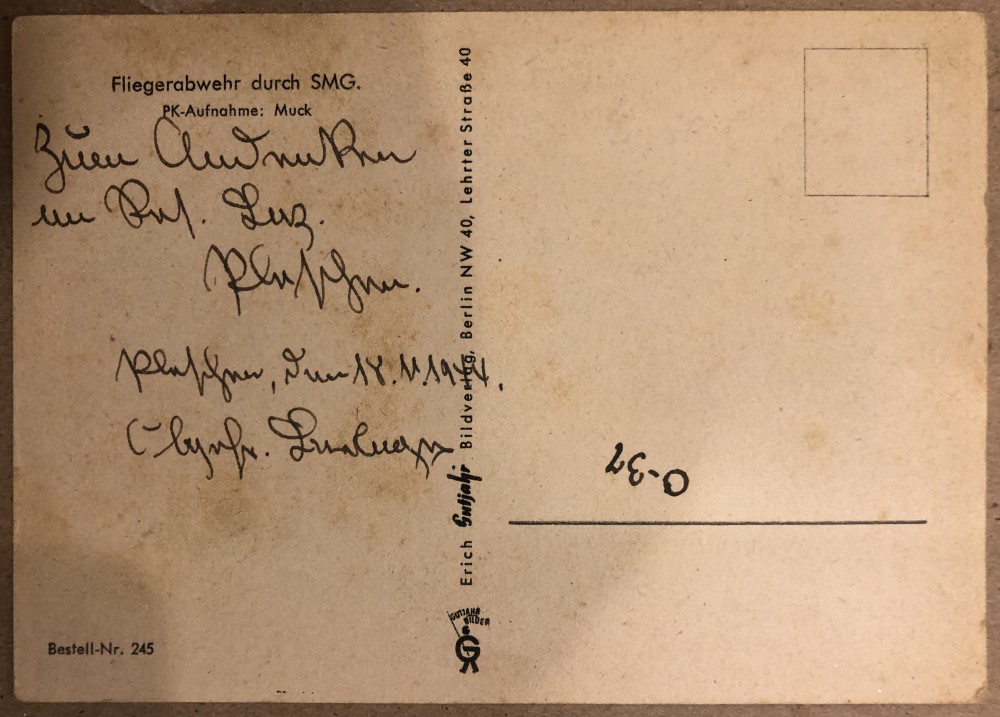 Fliegerabwehr durch SMG.
PK-Aufnahme: Muck
Zum Andenken
im Res. Laz.
Pleschen.
Pleschen, den 18.11.1944.
Erich Gutjahr Bildverlag, Berlin NW 40, Lehrter Straße 40
O-37
GUTJAHR
BILDER
Bestell-Nr. 245